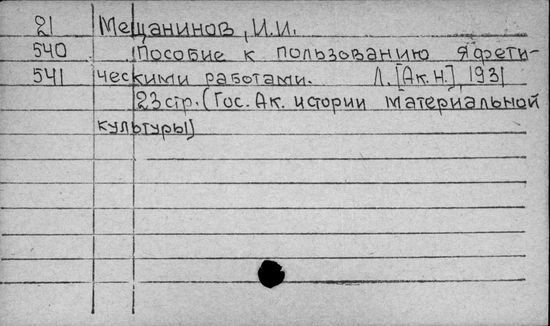 21 Мещанинов, И.И.
540 Пособие к пользованию яфети-
541 ческими работами. Л. [Ак.н.], 1931
23 стр. (Гос. Ак. истории материальной
культуры)